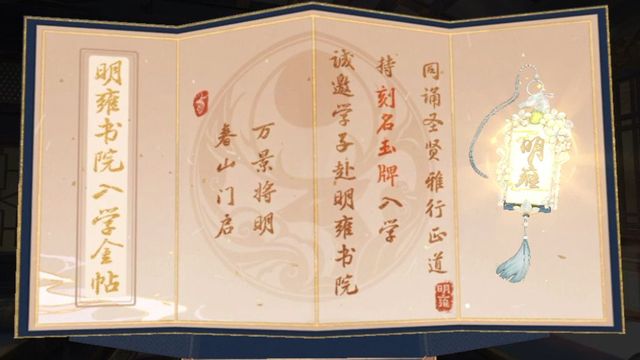 明雍书院入学金帖
春山门启
万景将明
诚邀学子赴明雍书院
持刻名玉牌入学
同诵圣贤雅行正道
明雍
明雍